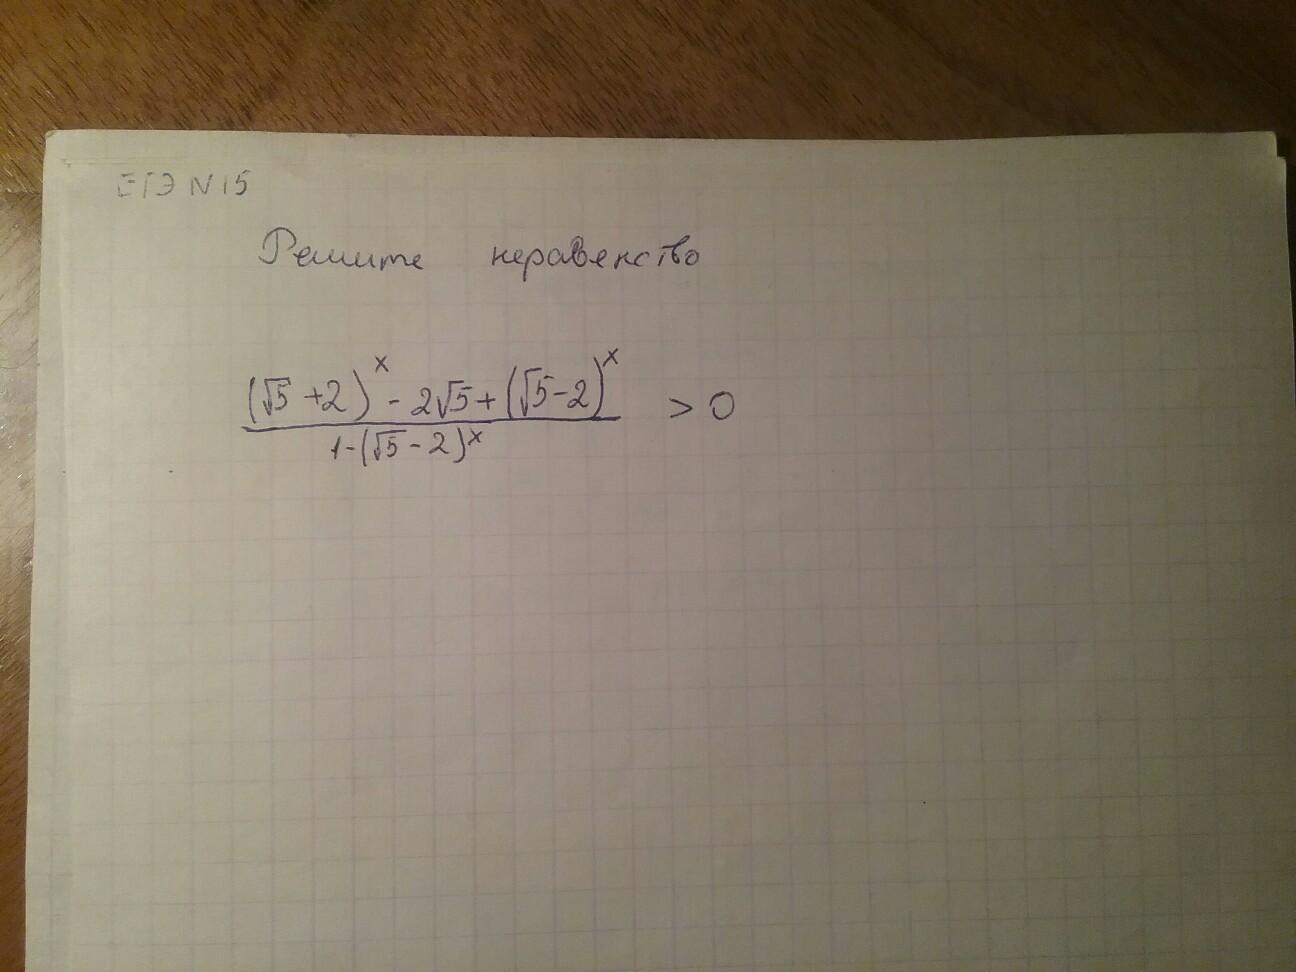 ЕГЭ N 15
Решите неравенство
(√5 +2)^x - 2√5 + (√5-2)^x > 0
1-(√5-2)^x